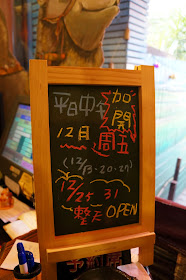 平日中午加開
12月週五
(12/13.20.27)
12/25 31
整天OPEN